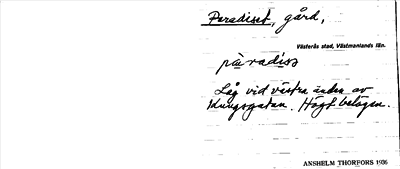 Paradiset, gård,
Västerås stad, Västmanlands län.
pàradiss
Låg vid västra änden av
Kungsgatan. Högt belägen.
ANSHELM THORFORS 1936